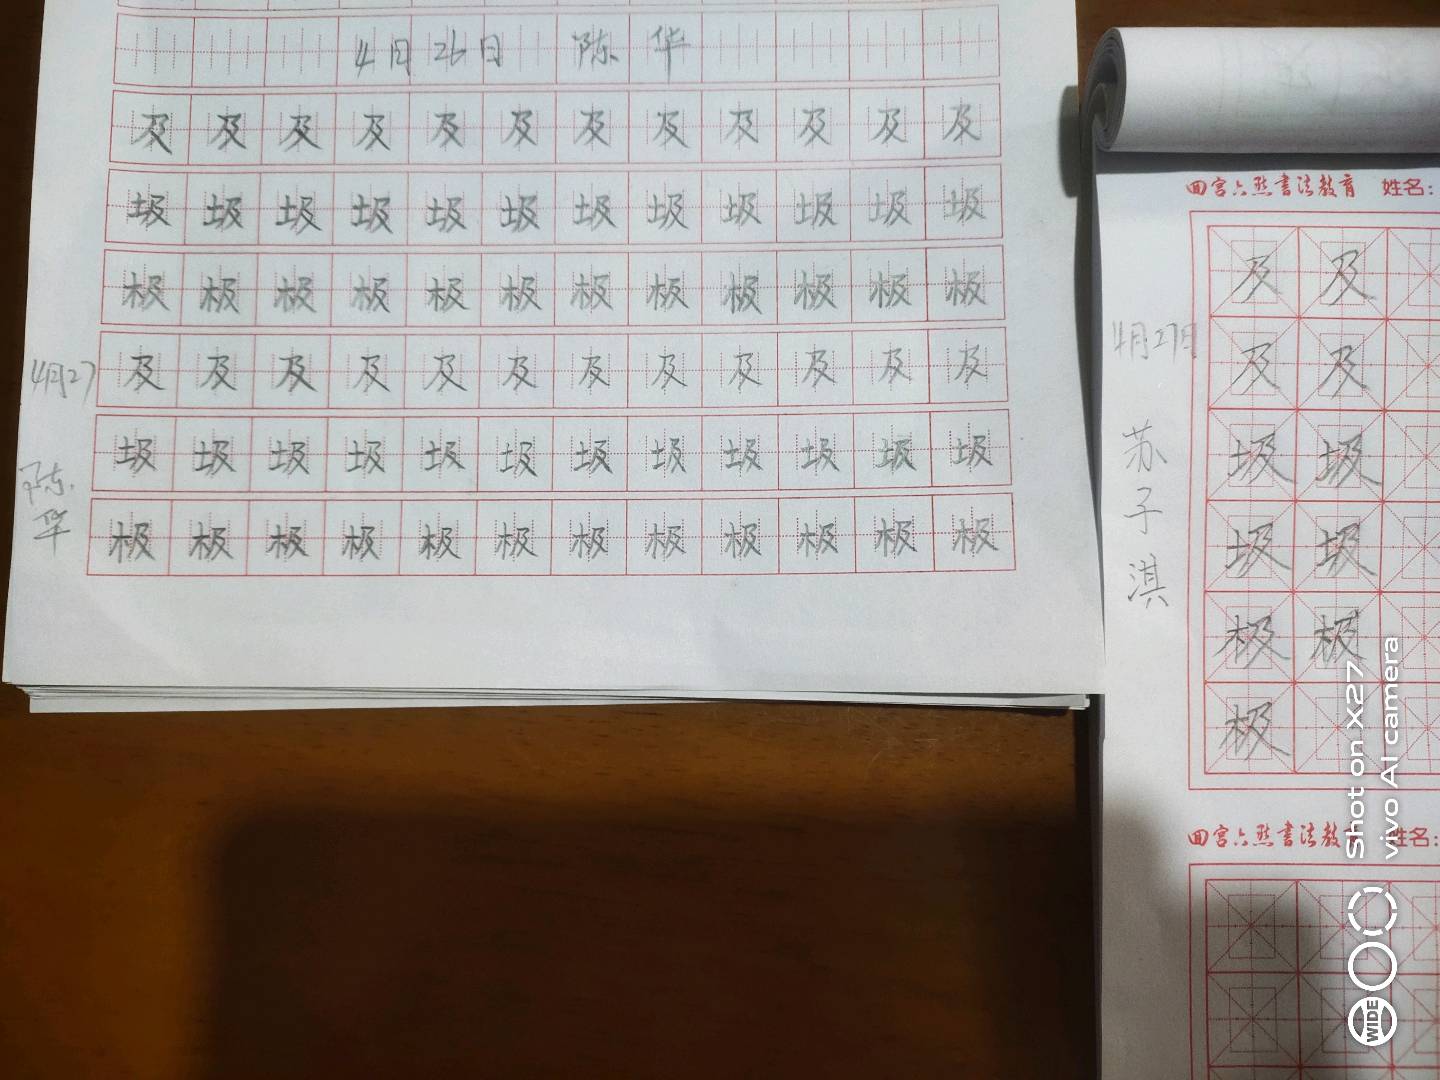 4月26日 陈华
及及及及及及及及及及及及
圾圾圾圾圾圾圾圾圾圾圾圾
极极极极极极极极极极极极
4月27
陈华
及及及及及及及及及及及及
圾圾圾圾圾圾圾圾圾圾圾圾
极极极极极极极极极极极极
回宫六点书法教育 姓名:
4月27日
苏子淇
及及
及及
圾圾
圾圾
极极
极
回宫六点书法教 姓名:
Shot on X27
vivo AI camera
WIDE